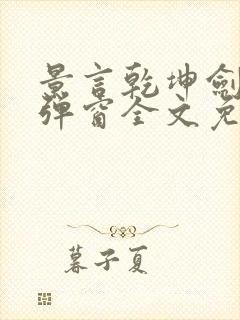 景言乾坤剑
弹窗全文免
暮子夏